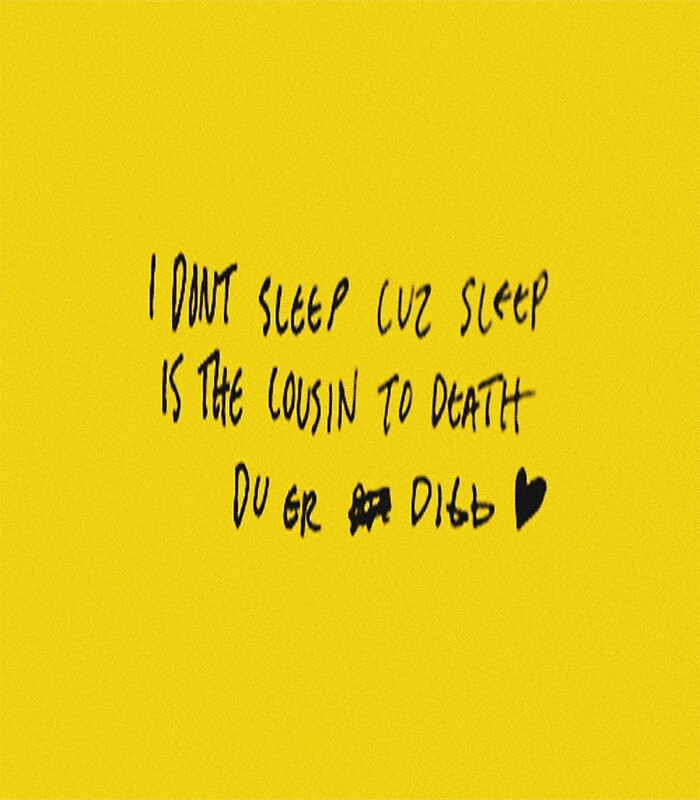 I DONT SLEEP CUZ SLEEP
IS THE COUSIN TO DEATH
DU ER DIGG